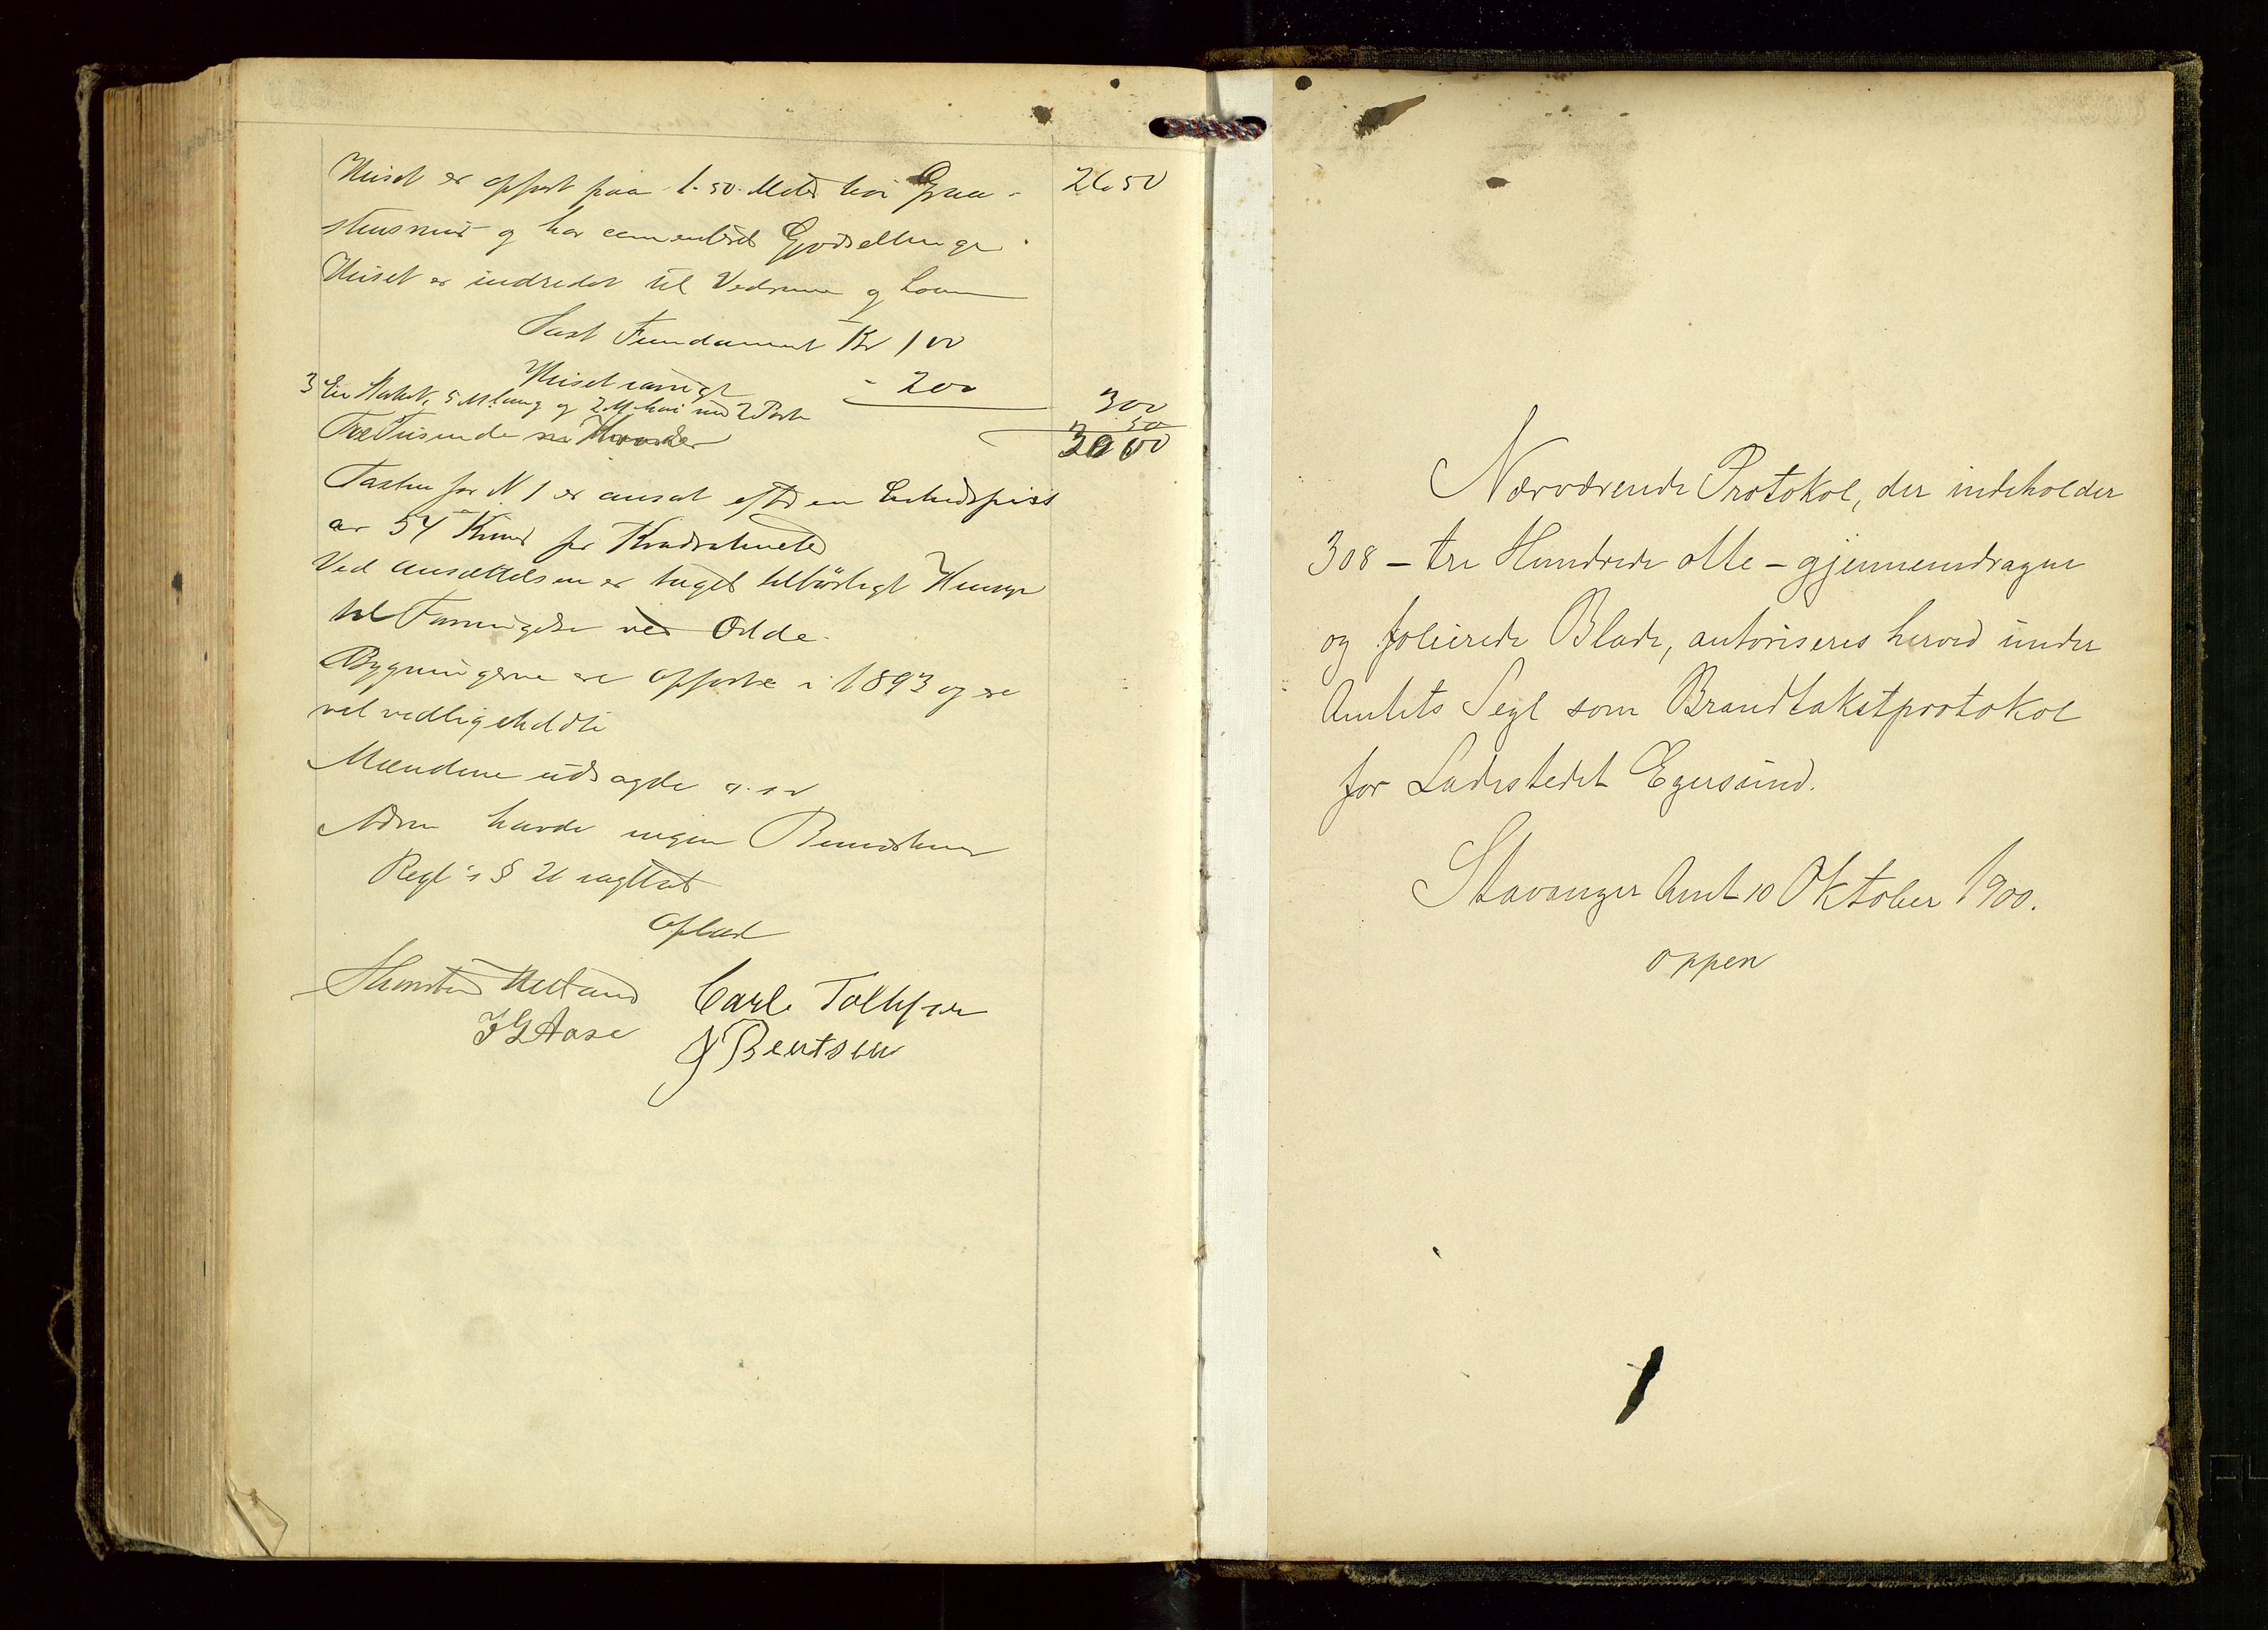 Huset er opført paa 1.50 Meter høi Graa- 2650
stensmur og har cementeret Gjødselbinge.
Huset er indredet til Vedrum og
Taxt Fundament Kr 100
Huset iøvrigt - 200 300
3 Et Stakit, 5 M. lang og 2 M. høi med 2 Porte 50
Tre Tusinde 3000
Taxten for N 1 er ansat efter en Enhedspris
av 54 Kroner per Kvadratmeter
Ved Ansættelsen er taget tilbørligt Hensyn
til Forringelse ved Ælde.
Bygningerne ere opførte i 1893 og ere
vel vedligeholdte
Mændene udsagde a.s.v
Ingen havde nogen Bemerkning
Regl's § 21 iagttat
Oplæst
Carl Tollefsen
J G Aase J Bentsen
Nærværende Protokol, der indeholder
308 - tre Hundrede otte - gjennemdragne
og folierede Blade, autoriseres herved under
Amtets Segl som Brandtakstprotokol
for Ladestedet Egersund.
Stavanger Amt 10 Oktober 1900.
oppen